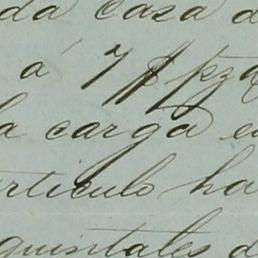 da casa d
á 7 $ pza
a carga e
rticulo ha
quintales d